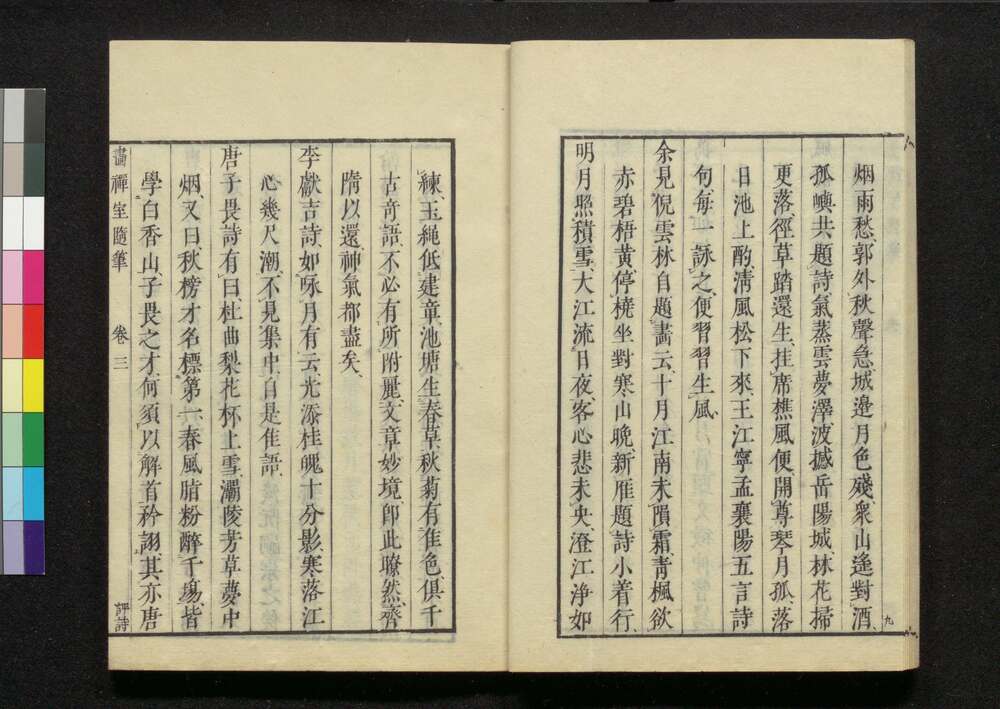 烟雨愁、郭外秋聲急、城邊月色殘、衆山遙對酒、
孤嶼共題詩、氣蒸雲夢澤、波撼岳陽城、林花掃
更落、徑草踏還生、挂席樵風便、開尊琴月孤、落
日池上酌、清風松下來、王江寧孟襄陽五言詩
句、每一詠之、便習習生風、
余見倪雲林自題畵云、十月江南未隕霜、青楓欲
赤碧梧黃、停橈坐對寒山晚、新雁題詩小着行、
明月照積雪、大江流日夜、客心悲未央、澄江淨如
九
練、玉繩低建章、池塘生春草、秋菊有佳色、俱千
古奇語、不必有所附麗、文章妙境、卽此瞭然、齊
隋以還、神氣都盡矣、
李獻吉詩、如咏月有云、光添桂魄十分影、寒落江
心幾尺潮、不見集中、自是佳語、
唐子畏詩有曰、杜曲梨花杯上雪、灞陵芳草夢中
烟、又曰、秋榜才名標第一、春風脂粉醉千塲、皆
學白香山、子畏之才、何須以解首矜詡、其亦唐
畵禪室隨筆 卷三 評詩